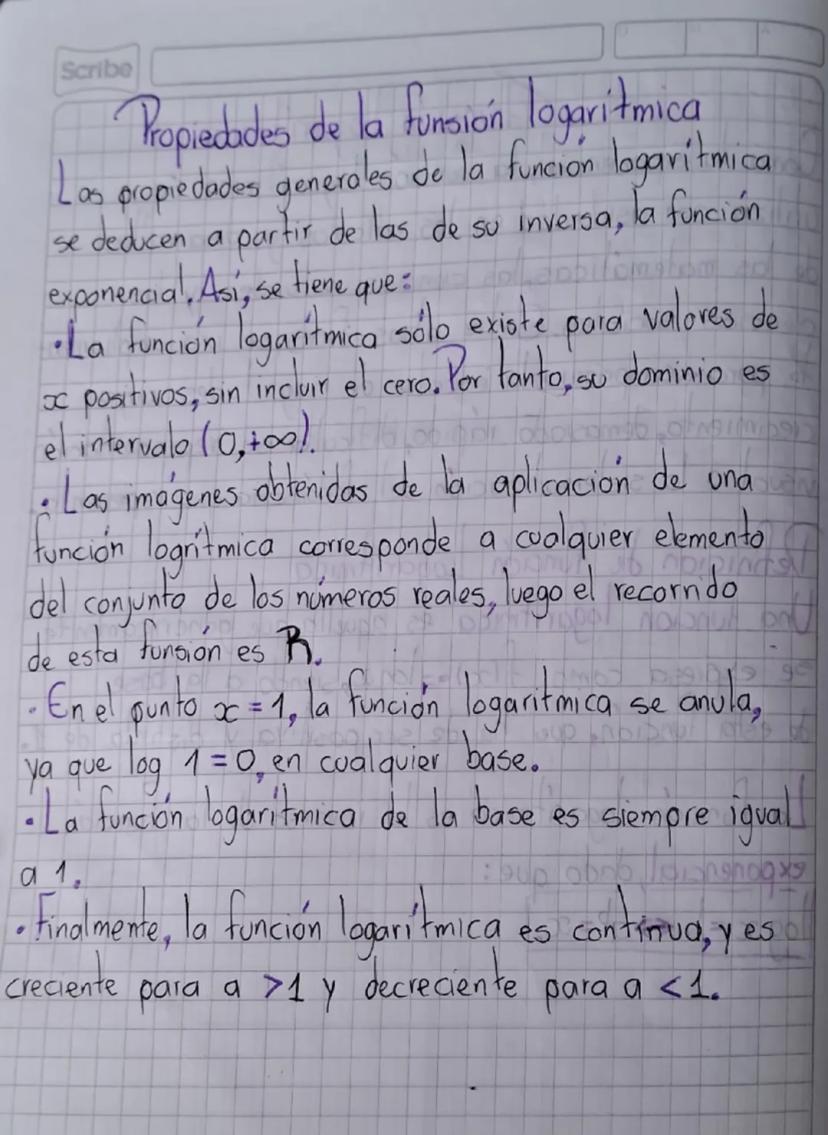 Scribe
Propiedades de la funsión logarítmica
Las propiedades generales de la función logarítmica
se deducen a partir de las de su inversa, la función
exponencial. Así, se tiene que:
•La función logarítmica sólo existe para valores de
x positivos, sin incluir el cero. Por tanto, su dominio es
el intervalo (0,+∞).
•Las imágenes obtenidas de la aplicación de una
función logrítmica corresponde a cualquier elemento
del conjunto de los números reales, luego el recorrido
de esta funsión es R.
•En el punto x=1, la función logarítmica se anula,
ya que log 1=0, en cualquier base.
•La función logarítmica de la base es siempre igual
a 1.
•Finalmente, la función logarítmica es continua, y es
creciente para a >1 y decreciente para a <1.